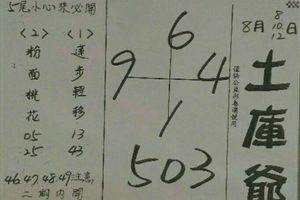 5尾小心來必開
8月 8 10 12 日
土庫爺
〈1〉
蓮步輕移
13
43
〈2〉
粉面桃花
05
25
6
9 4
1
503
46.47.48.49注意
二期內開